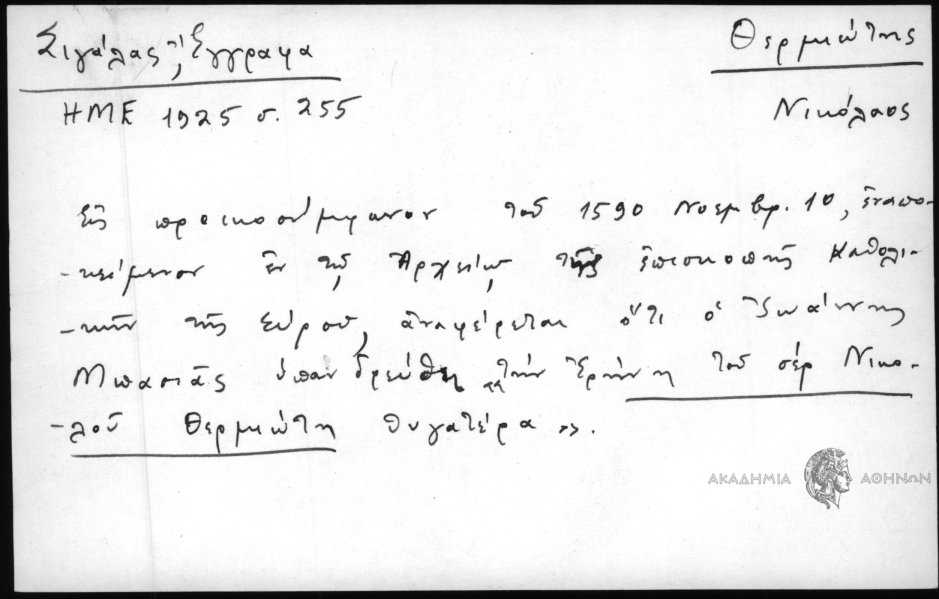 Σιγάλας, Ἔγγραφα
Θερμιώτης
ΗΜΕ 1925 σ. 255
Νικόλαος
Εἰς προικοσύμφωνον τοῦ 1590 Νοεμβρ. 10, ἐναπο-
-κείμενον ἐν τῷ Ἀρχείῳ τῆς ἐπισκοπῆς Καθολι-
-κῶν τῆς Σύρου, ἀναφέρεται ὅτι ὁ Ἰωάννης
Μπασιᾶς ὑπανδρεύθη "τὴν Ἐρήνη τοῦ σὲρ Νικο-
-λοῦ Θερμιώτη θυγατέρα».
ΑΚΑΔΗΜΙΑ ΑΘΗΝΩΝ